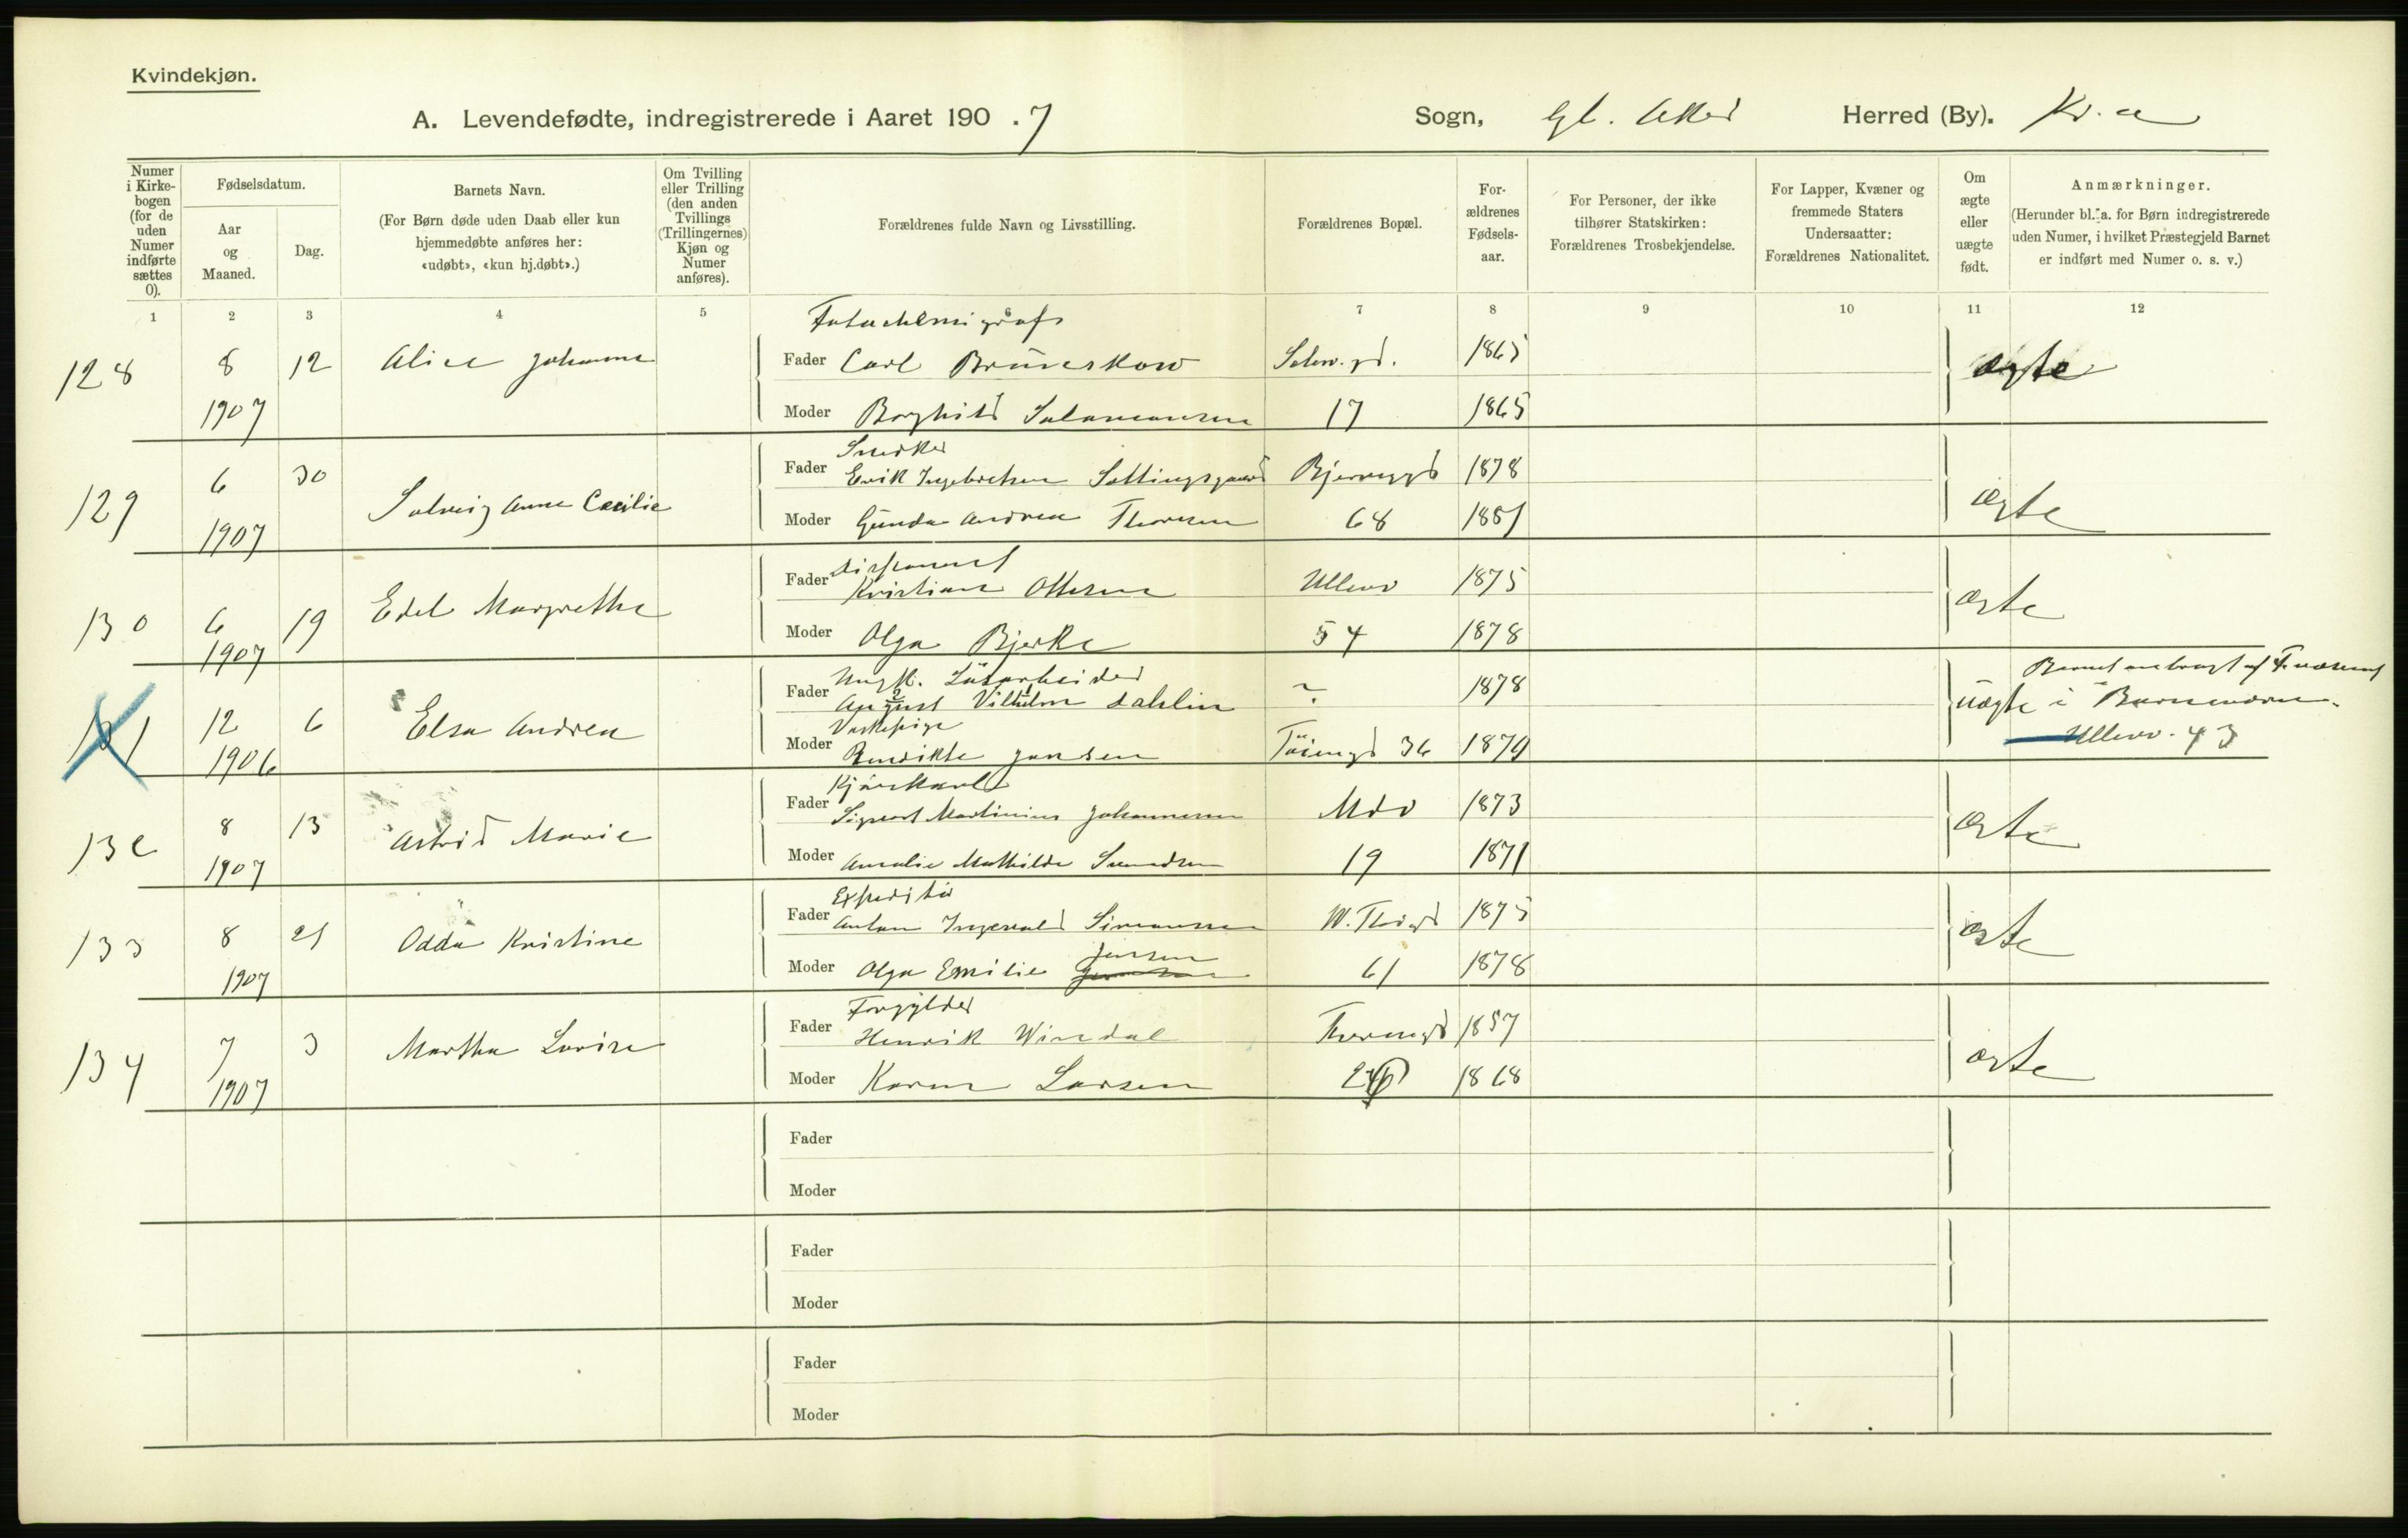 Kvindekjøn.
A. Levendefødte, indregistrerede i Aaret 190 . 7
Sogn, Gl. Aker
Herred (By). Kr.a
Numer i Kirke-bogen (for de uden Numer indførte sættes 0).
Fødselsdatum.
Aar og Maaned.
Dag.
Barnets Navn.
(For Børn døde uden Daab eller kun hjemmedøbte anføres her: «udøbt», «kun hj.døbt».)
Om Tvilling eller Trilling (den anden Tvillings (Trillingernes) Kjøn og Numer anføres).
Forældrenes fulde Navn og Livsstilling.
Forældrenes Bopæl.
For-ældrenes Fødsels-aar.
For Personer, der ikke tilhører Statskirken: Forældrenes Trosbekjendelse.
For Lapper, Kvæner og fremmede Staters Undersaatter: Forældrenes Nationalitet.
Om ægte eller uægte født.
Anmærkninger.
(Herunder bl. a. for Børn indregistrerede uden Numer, i hvilket Præstegjeld Barnet er indført med Numer o. s. v.)
1 2 3 4 5 7 8 9 10 11 12
128 8 1907 12 Alice Johanne
Fader Carl 1865 ægte
Moder Borghild Salamonsen 17 1865
129 6 1907 30 Solveig Anne Cecilie
Snedker
Fader Erik Ingebretsen 1878 ægte
Moder Gunda Andrea Thoresen 68 1881
130 6 1907 19 Edel Margrethe
Disponent
Fader Kristian Ottesen Ullevv 1875 ægte
Moder Olga Bjerke 54 1878
131 12 1906 6 Elsa Andrea
Ungk. Løsarbeider
Fader August Vilhelm Dahlin ? 1878 uægte
Moder Bendikte Jansen Tøiengd 36 1879
i Barnehjem
Ullevv. 43
132 8 1907 13 Astrid Marie
Kjørekarl
Fader Sigvart Martinius Johannesen Mdv 1873 ægte
Moder Amalie Mathilde Svendsen 19 1871
133 8 1907 21 Odda Kristine
Expeditør
Fader Anton Ingevald Simensen W. Thrsgd 1875 ægte
Moder Olga Emilie Jensen 61 1878
134 7 1907 3 Martha Lovise
Forgylder
Fader Henrik Windal 1857 ægte
Moder Karen Larsen 1868
Fader
Moder
Fader
Moder
Fader
Moder